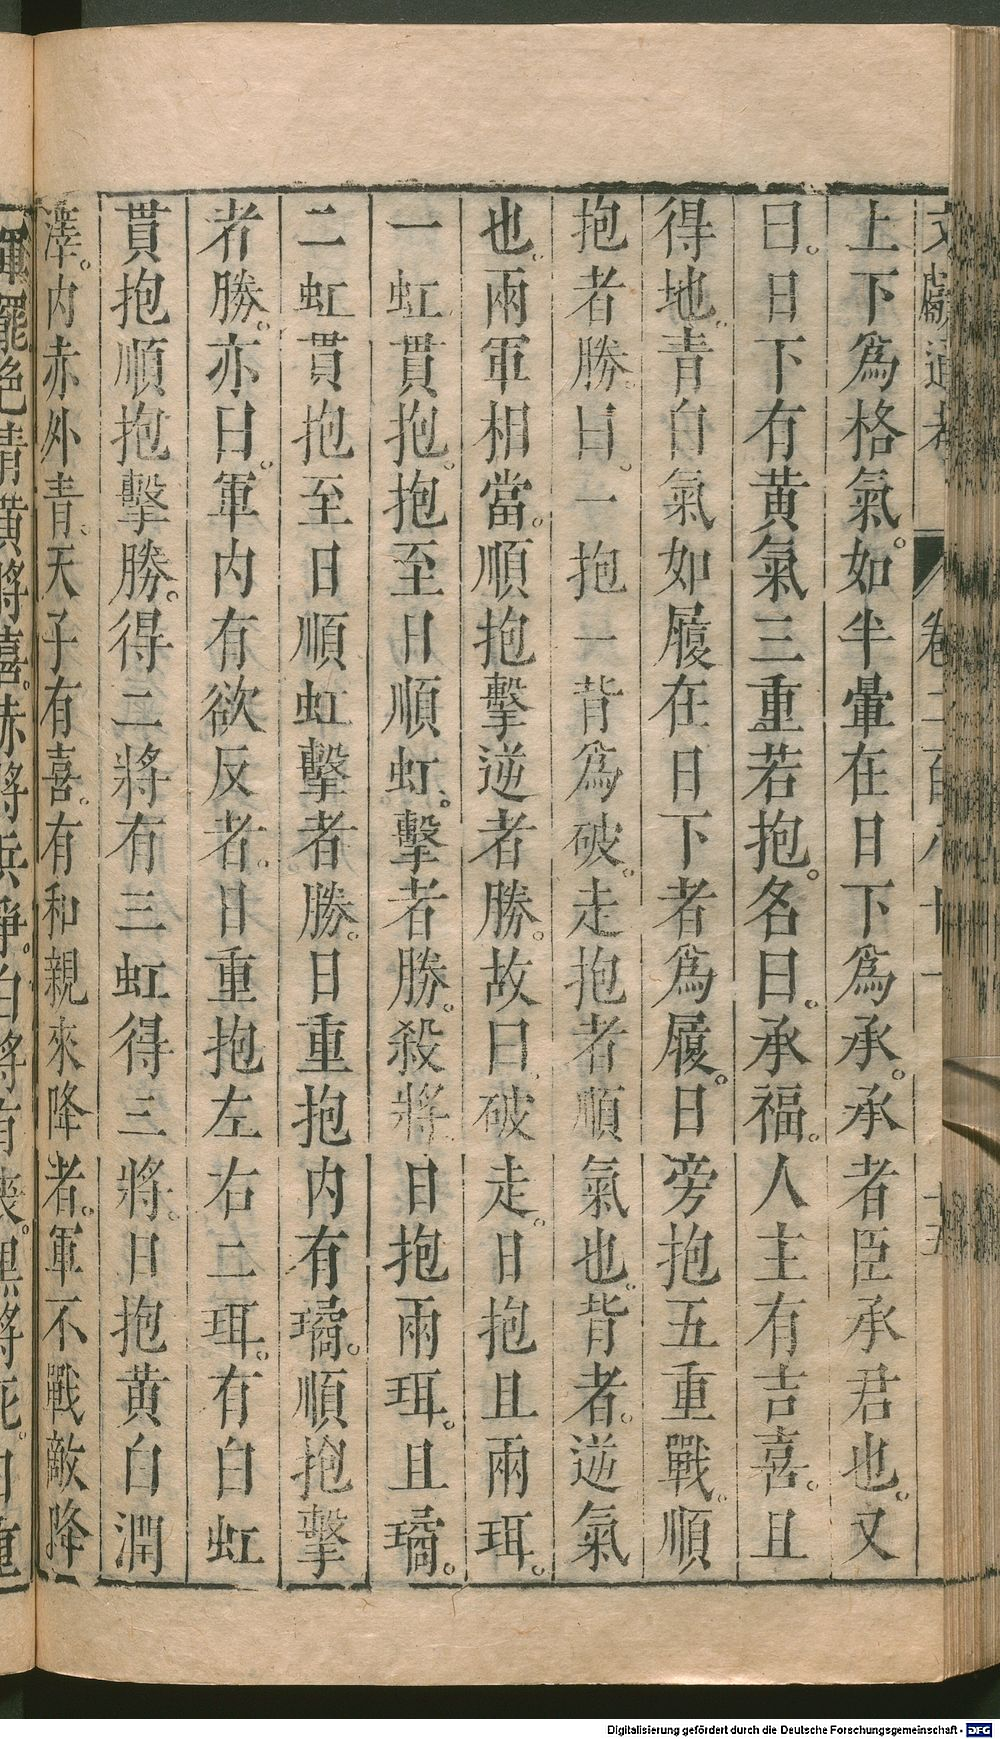 文獻通考 卷二百八十一 十五
上下爲格氣。如半暈在日下爲承。承者臣承君也。又
曰。日下有黃氣三重若抱。名曰。承福。人主有吉喜。且
得地。青白氣如履在日下者爲履。日旁抱五重戰。順
抱者勝。曰。一抱一背爲破。走抱者順氣也。背者。逆氣
也。兩軍相當。順抱擊逆者勝。故曰破走。日抱且兩珥。
一虹貫抱。抱至日順虹。擊者勝。殺將。日抱兩珥。且璚。
二虹貫抱至日順虹擊者勝。日重抱内有璚。順抱擊
者勝。亦曰。軍内有欲反者。日重抱左右二珥。有白虹
貫抱順抱擊勝。得二將有三虹得三將。日抱黃白潤
澤。内赤外青。天子有喜。有和親來降者。軍不戰敵降
軍罷色青黃將喜。赤將兵爭。白將有喪。黑將死。日重
Digitalisierung gefördert durch die Deutsche Forschungsgemeinschaft - DFG